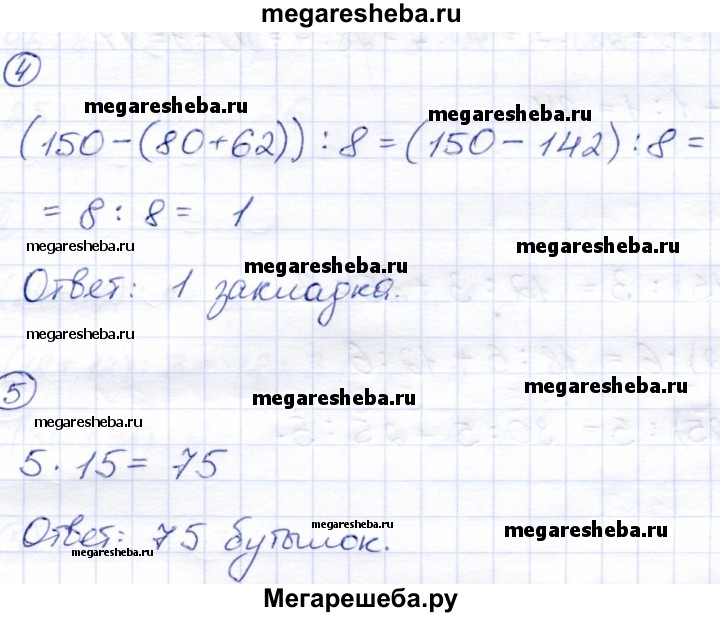 megaresheba.ru
4
megaresheba.ru megaresheba.ru
(150-(80+62)):8=(150-142):8=
=8:8= 1
megaresheba.ru megaresheba.ru
megaresheba.ru
Ответ: 1 закладка.
megaresheba.ru
5
megaresheba.ru megaresheba.ru
megaresheba.ru
5·15= 75
megaresheba.ru megaresheba.ru
Ответ: 75 бутылок.
megaresheba.ru
Мегарешеба.ру